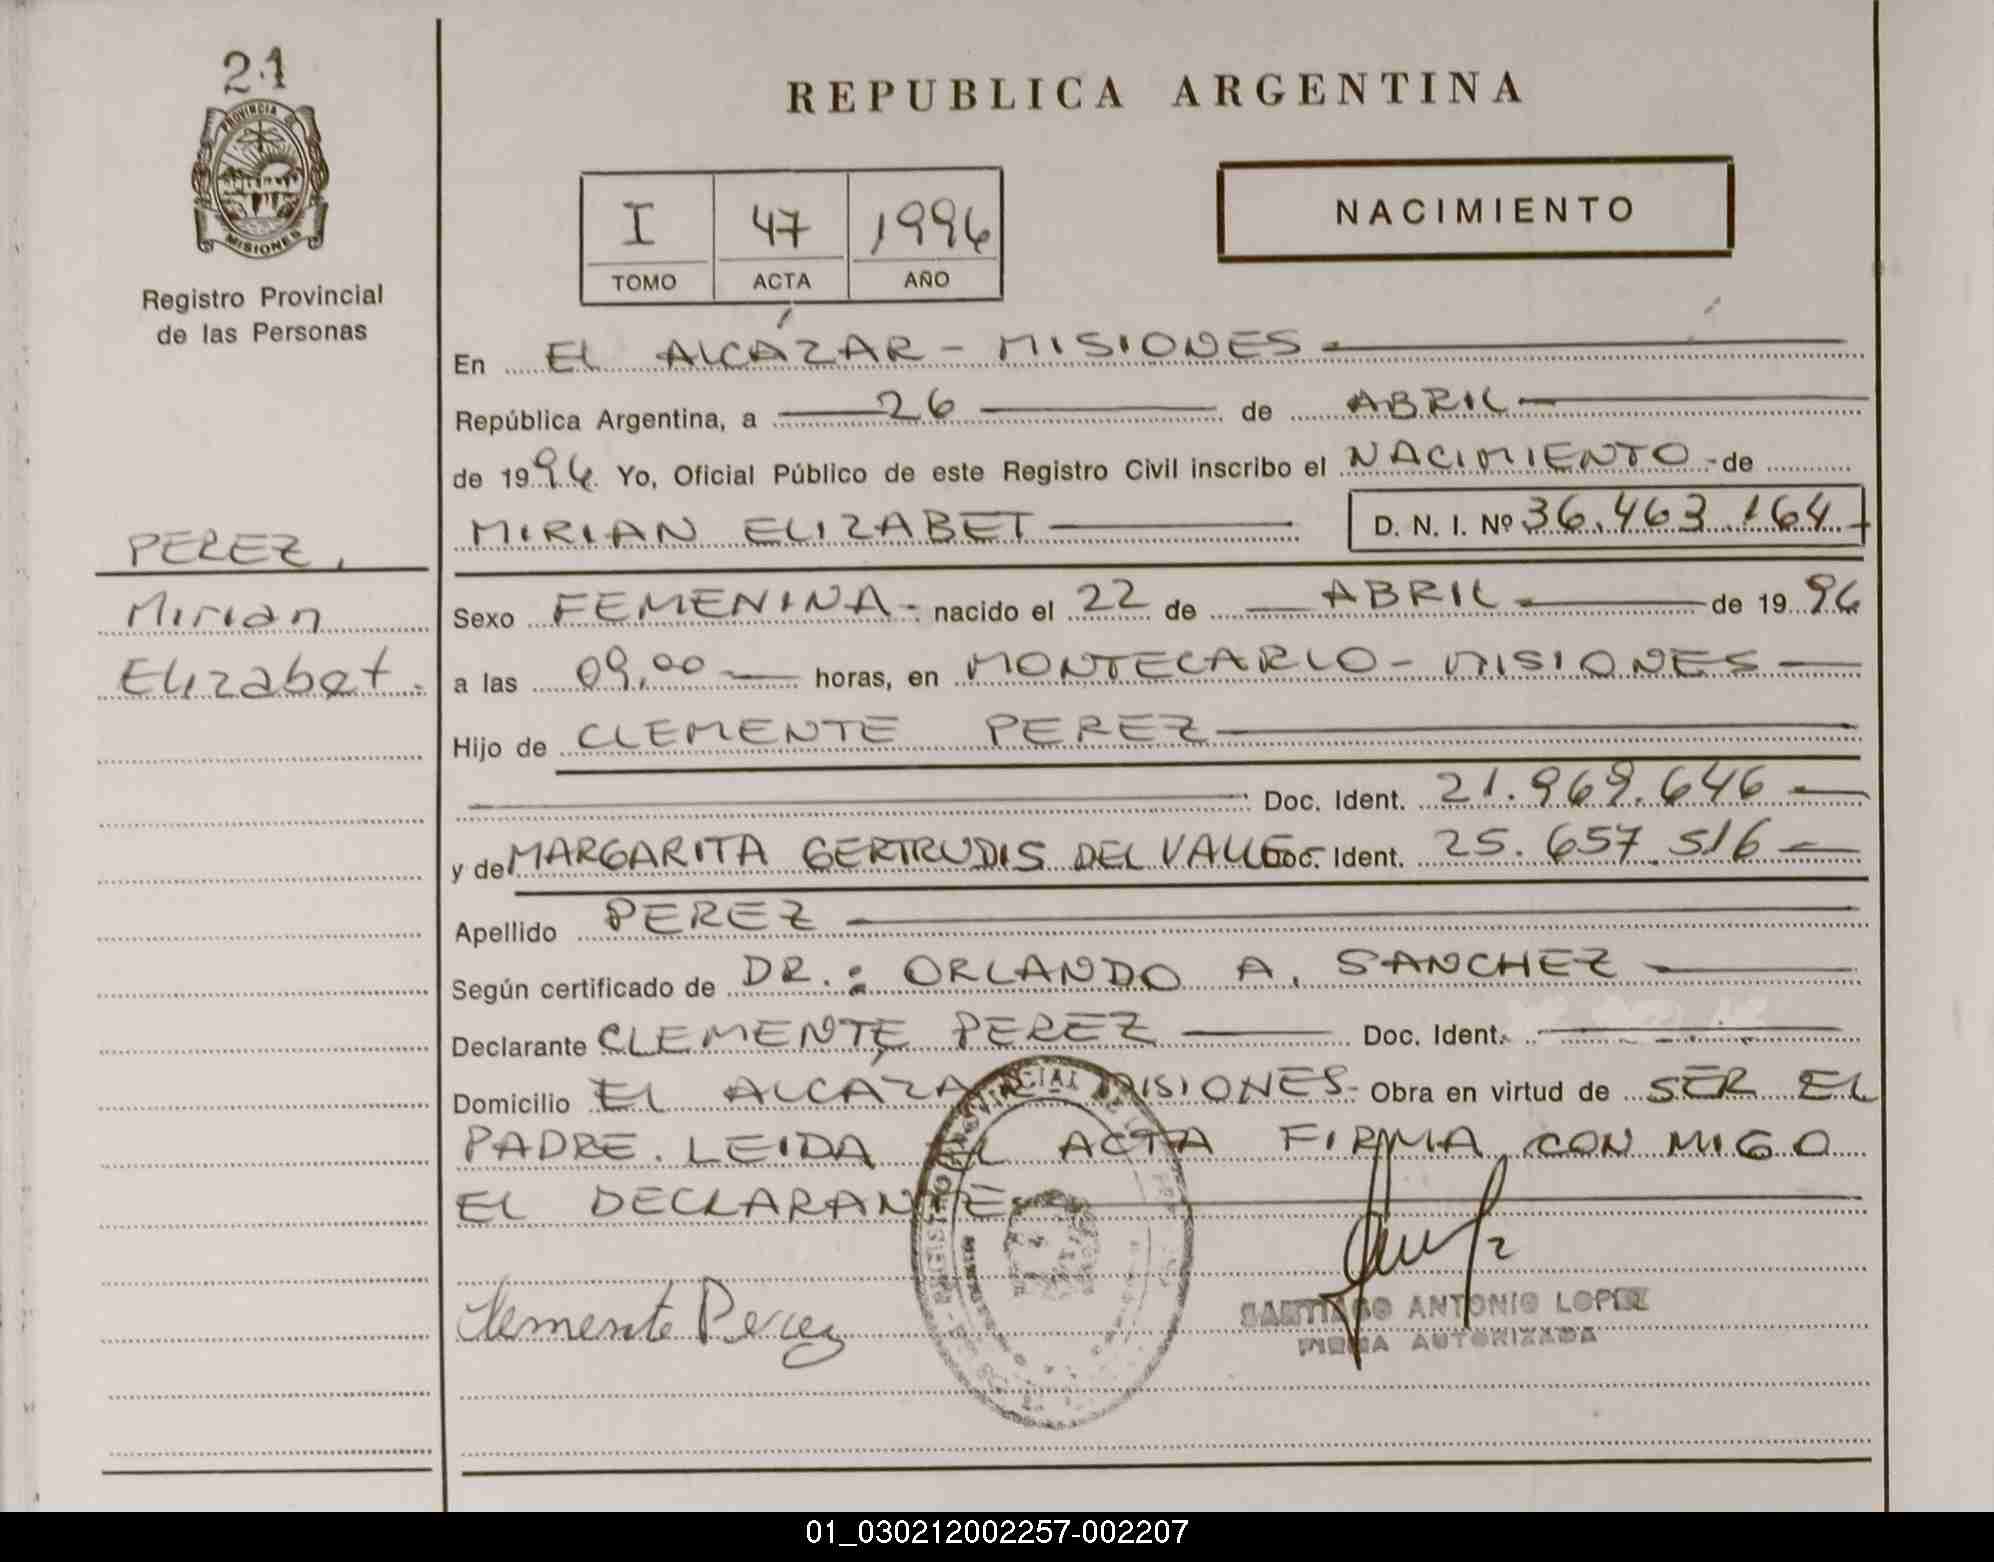 21
PROVINCIA DE
MISIONES
Registro Provincial
de las Personas
PEREZ,
Mirian
Elizabet.
REPUBLICA ARGENTINA
I 47 1996
TOMO ACTA AÑO
NACIMIENTO
En EL ALCÁZAR - MISIONES
República Argentina, a 26 de ABRIL
de 1996. Yo, Oficial Público de este Registro Civil inscribo el NACIMIENTO - de
MIRIAN ELIZABET D. N. I. Nº 36.463.164
Sexo FEMENINA - nacido el 22 de ABRIL de 1996
a las 09,00 horas, en MONTECARLO - MISIONES
Hijo de CLEMENTE PEREZ
Doc. Ident. 21.969.646
y de MARGARITA GERTRUDIS DEL VALLE Doc. Ident. 25.657.516
Apellido PEREZ
Según certificado de DR.: ORLANDO A. SANCHEZ
Declarante CLEMENTE PEREZ Doc. Ident.
Domicilio EL ALCÁZAR MISIONES - Obra en virtud de SER EL
PADRE. LEIDA EL ACTA FIRMA CON MIGO
EL DECLARANTE
Clemente Perez
SANTIAGO ANTONIO LOPEZ
FIRMA AUTORIZADA
01_030212002257-002207